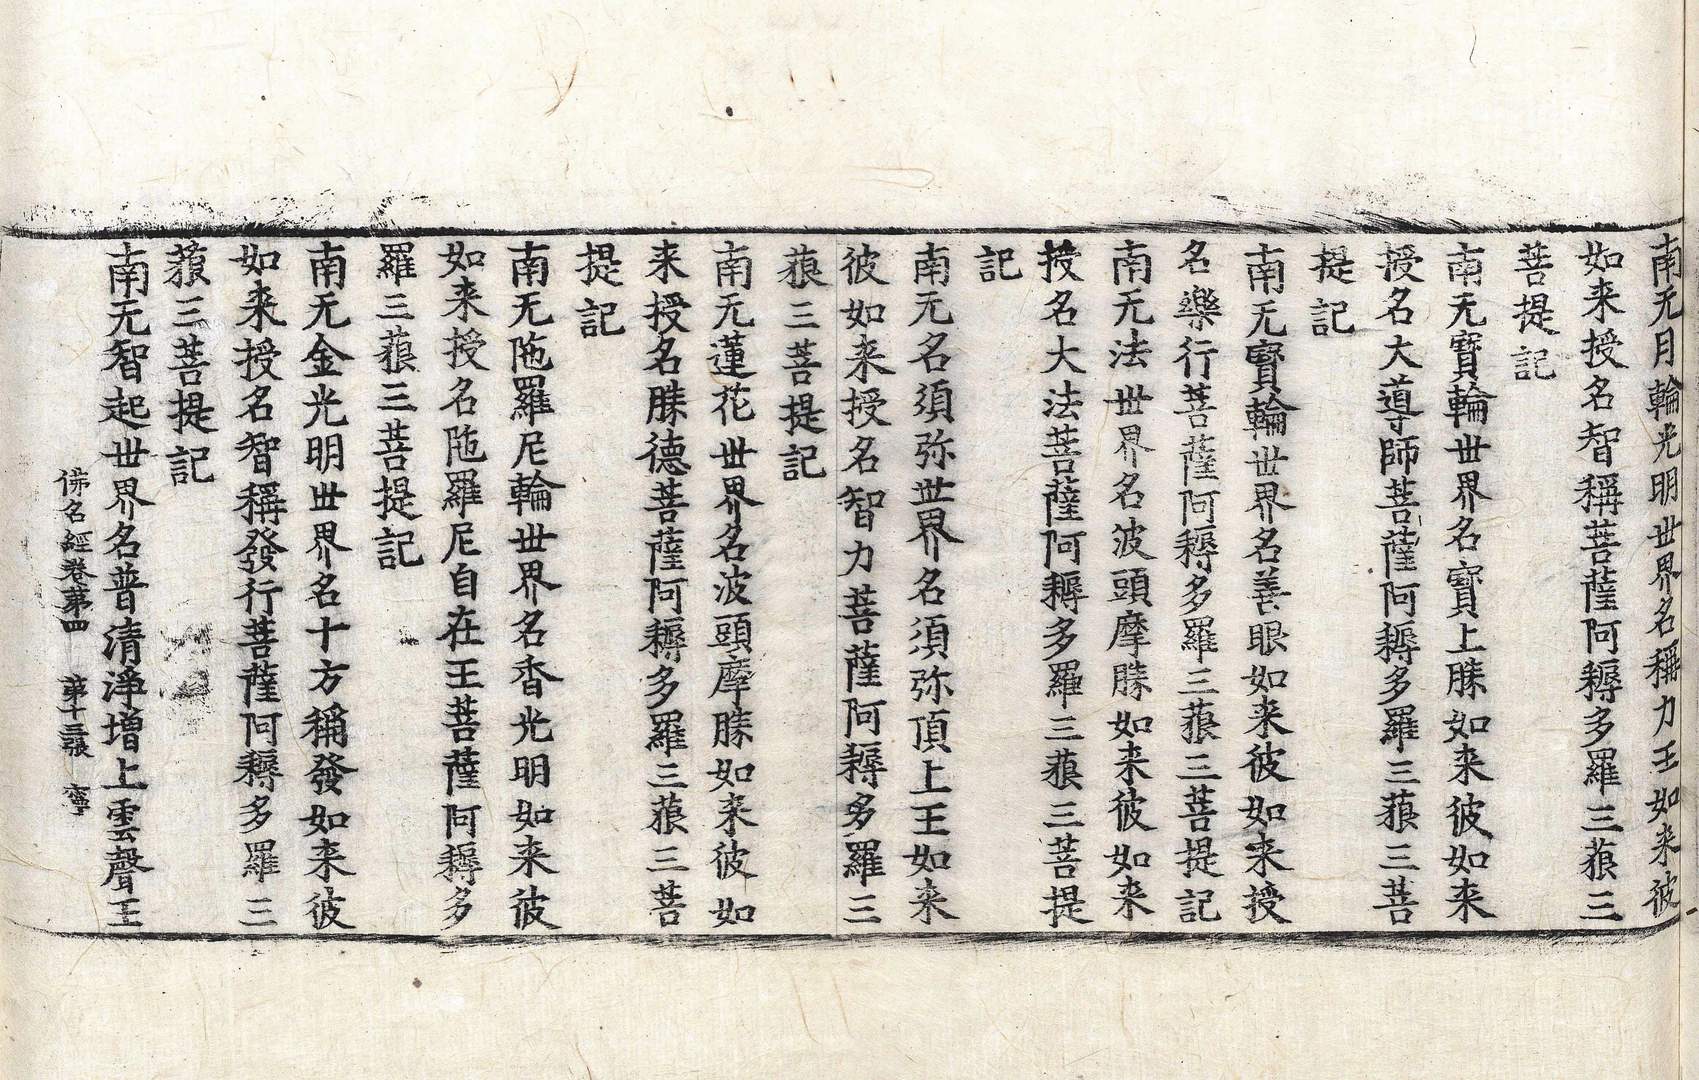 南无月輪光明世界名稱力王如来彼
如来授名智稱菩薩阿耨多羅三藐三
菩提記
南无寶輪世界名寶上勝如来彼如来
授名大導師菩薩阿耨多羅三藐三菩
提記
南无寶輪世界名善眼如来彼如来授
名樂行菩薩阿耨多羅三藐三菩提記
南无法世界名波頭摩勝如来彼如来
授名大法菩薩阿耨多羅三藐三菩提
記
南无名須弥世界名須弥頂上王如来
彼如来授名智力菩薩阿耨多羅三
藐三菩提記
南无蓮花世界名波頭摩勝如来彼如
来授名勝德菩薩阿耨多羅三藐三菩
提記
南无陁羅尼輪世界名香光明如来彼
如来授名陁羅尼自在王菩薩阿耨多
羅三藐三菩提記
南无金光明世界名十方稱發如来彼
如来授名智稱發行菩薩阿耨多羅三
藐三菩提記
南无智起世界名普清淨增上雲聲王
佛名經卷第四 第十三張 寧